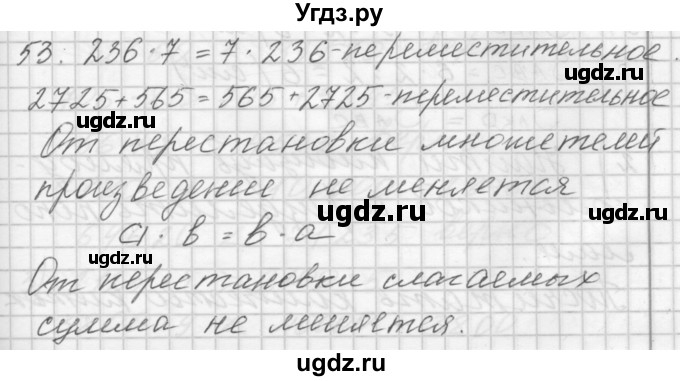 Угдз.ру
53. 236·7 = 7·236-переместительное.
2725+565 = 565+2725-переместительное
ugdz.ru ugdz.ru
От перестановки множетелей
произведении не меняется
ugdz.ru ugdz.ru
a·в = в·а
ugdz.ru
От перестановки слагаемых
ugdz.ru
сумма не меняется.
ugdz.ru ugdz.ru